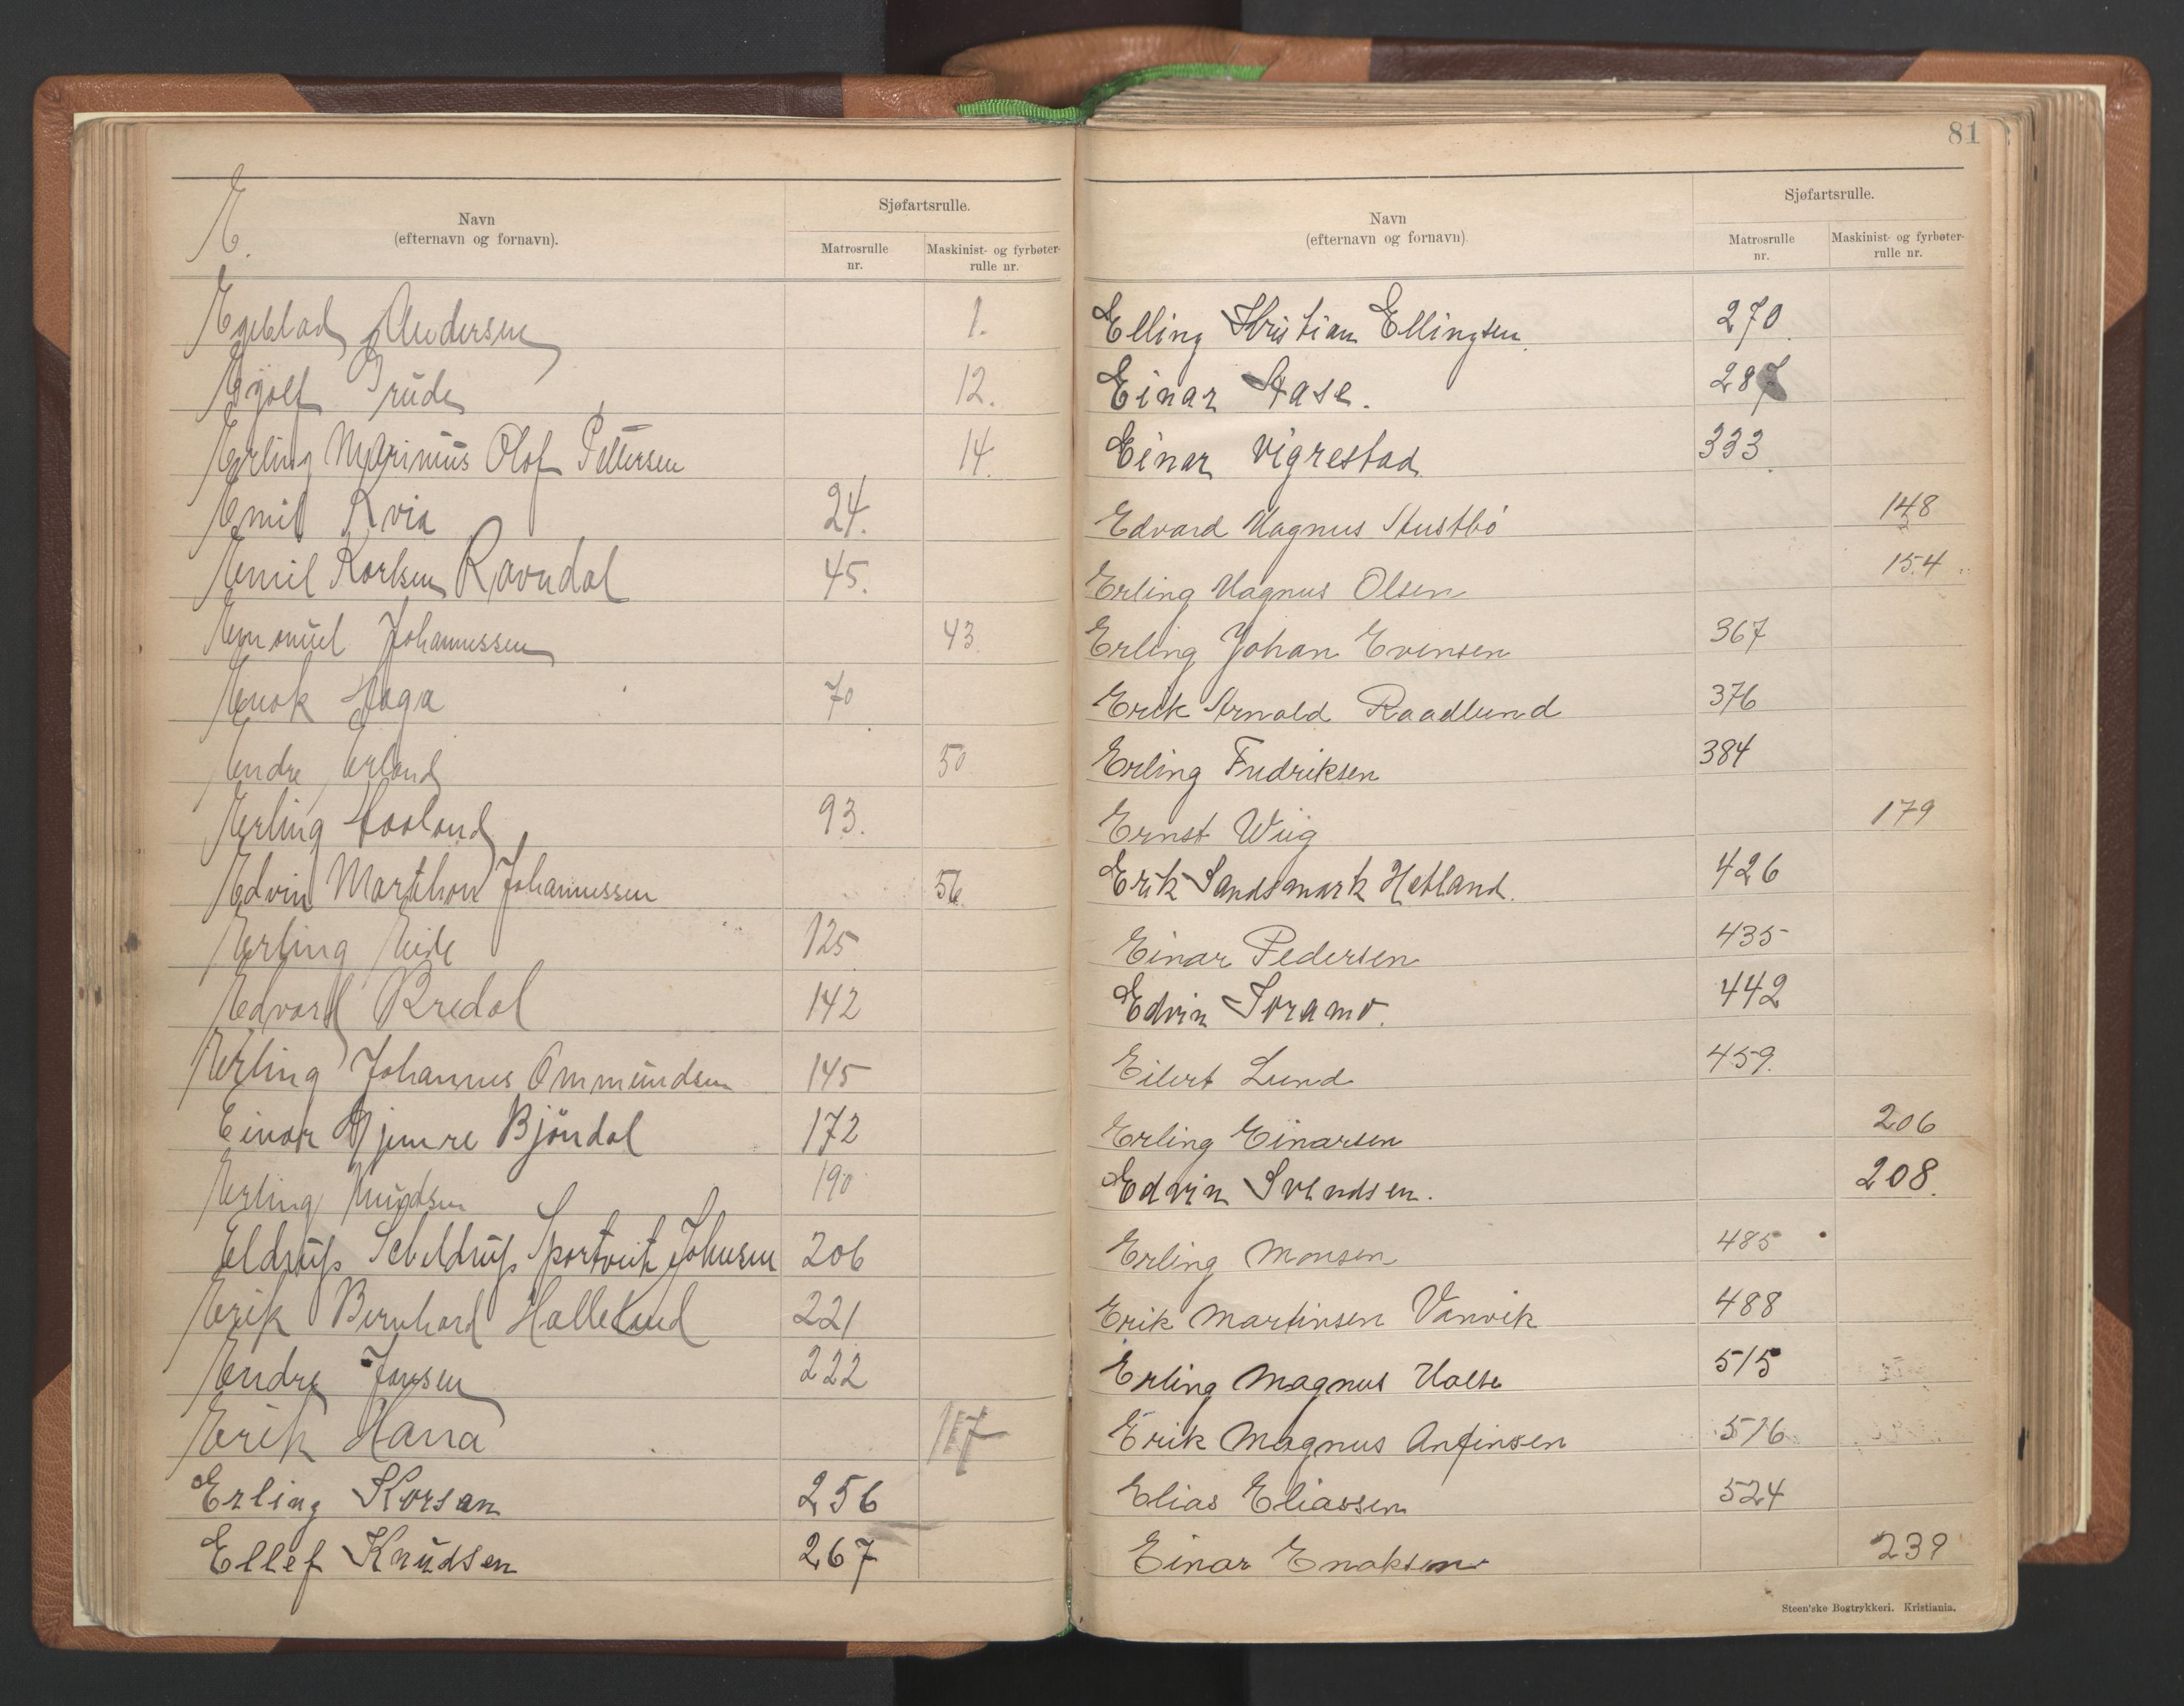 E.
Navn
(efternavn og fornavn).
Sjøfartsrulle.
Matrosrulle
nr.
Maskinist- og fyrbøter-
rulle nr.
Andersen 1.
Eyolf Grude 12.
Erling Marinius Olof Pettersen 14.
Emil Kvia 24.
Emil Karlsen Ravndal 45.
Emanuel Johannessen 43.
Enok Haga 70
Endre Erland 50
Erling Haaland 93.
Edvin Marthon Johannessen 56.
Erling Eide 125
Edvard Bredal 142
Erling Johannes Ommundsen 145
Einar Gjemre Bjöndal 172
Erling Knudsen 190
Eldrup Scheldrup Sportvik Johnsen 206
Erik Bernhard Hallelund 221
Endre Jansen 222
Erik Hana 117
Erling Korsan 256
Ellef Knudsen 267
81
Navn
(efternavn og fornavn).
Sjøfartsrulle.
Matrosrulle
nr.
Maskinist- og fyrbøter-
rulle nr.
Elling Kristian Ellingsen. 270.
Einar Aase. 287
Einar Vigrestad 333.
Edvard Magnus Stustbö 148
Erling Magnus Olsen 154
Erling Johan Evensen 367
Erik Arnold Raadlund 376
Erling Fredriksen 384
Ernst Wiig 179
Erik Sandsmark Hetland. 426
Einar Pedersen 435
Edvin Soramo. 442
Eilert Lund 459.
Erling Einarsen 206
Edvin Svendsen. 208.
Erling Monsen 485
Erik Martinsen Vanvik 488
Erling Magnus Halse 515
Erik Magnus Anfinsen 516
Elias Eliassen 524
Einar Enoksen 239
Steen'ske Bogtrykkeri. Kristiania.